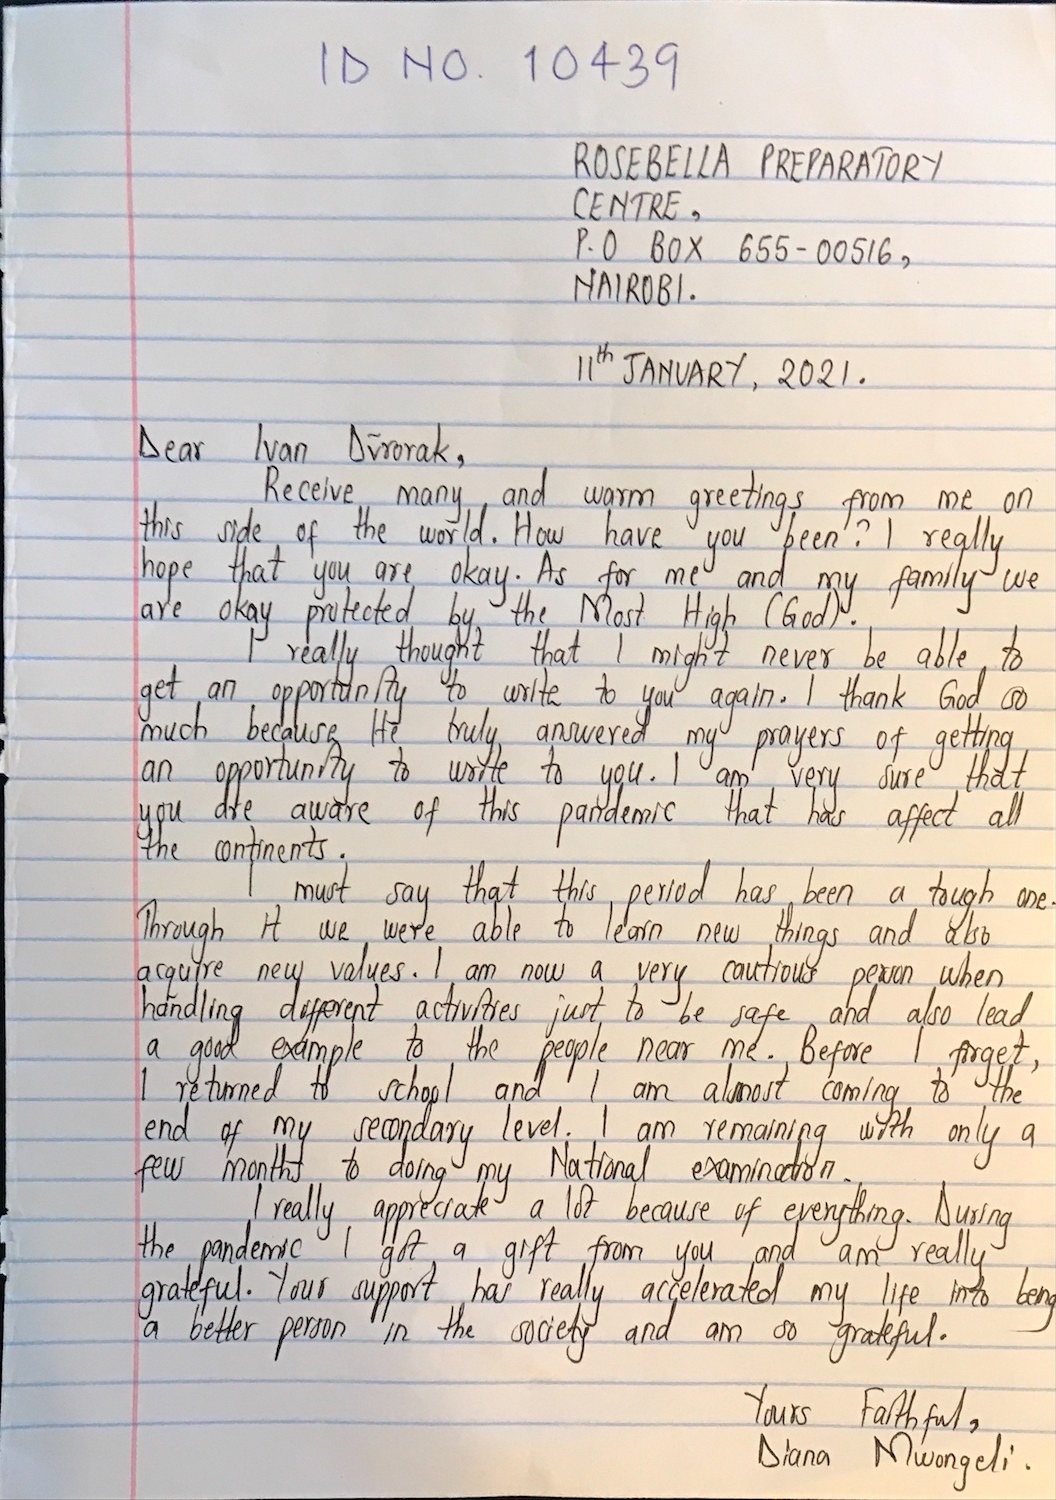 ID NO. 10439
ROSEBELLA PREPARATORY
CENTRE,
P.O BOX 655-00516,
NAIROBI.
11th JANUARY, 2021.
Dear Ivan Dvrorak,
Receive many and warm greetings from me on
this side of the world. How have you been? I really
hope that you are okay. As for me and my family we
are okay protected by the Most High (God).
I really thought that I might never be able to
get an opportunity to write to you again. I thank God so
much because He truly answered my prayers of getting
an opportunity to write to you. I am very sure that
you are aware of this pandemic that has affect all
the continents.
I must say that this period has been a tough one.
Through it we were able to learn new things and also
acquire new values. I am now a very cautious person when
handling different activities just to be safe and also lead
a good example to the people near me. Before I forget,
I returned to school and I am almost coming to the
end of my secondary level. I am remaining with only a
few months to doing my National examination.
I really appreciate a lot because of everything. During
the pandemic I got a gift from you and am really
grateful. Your support has really accelerated my life into being
a better person in the society and am so grateful.
Yours Faithful,
Diana Mwongeli.